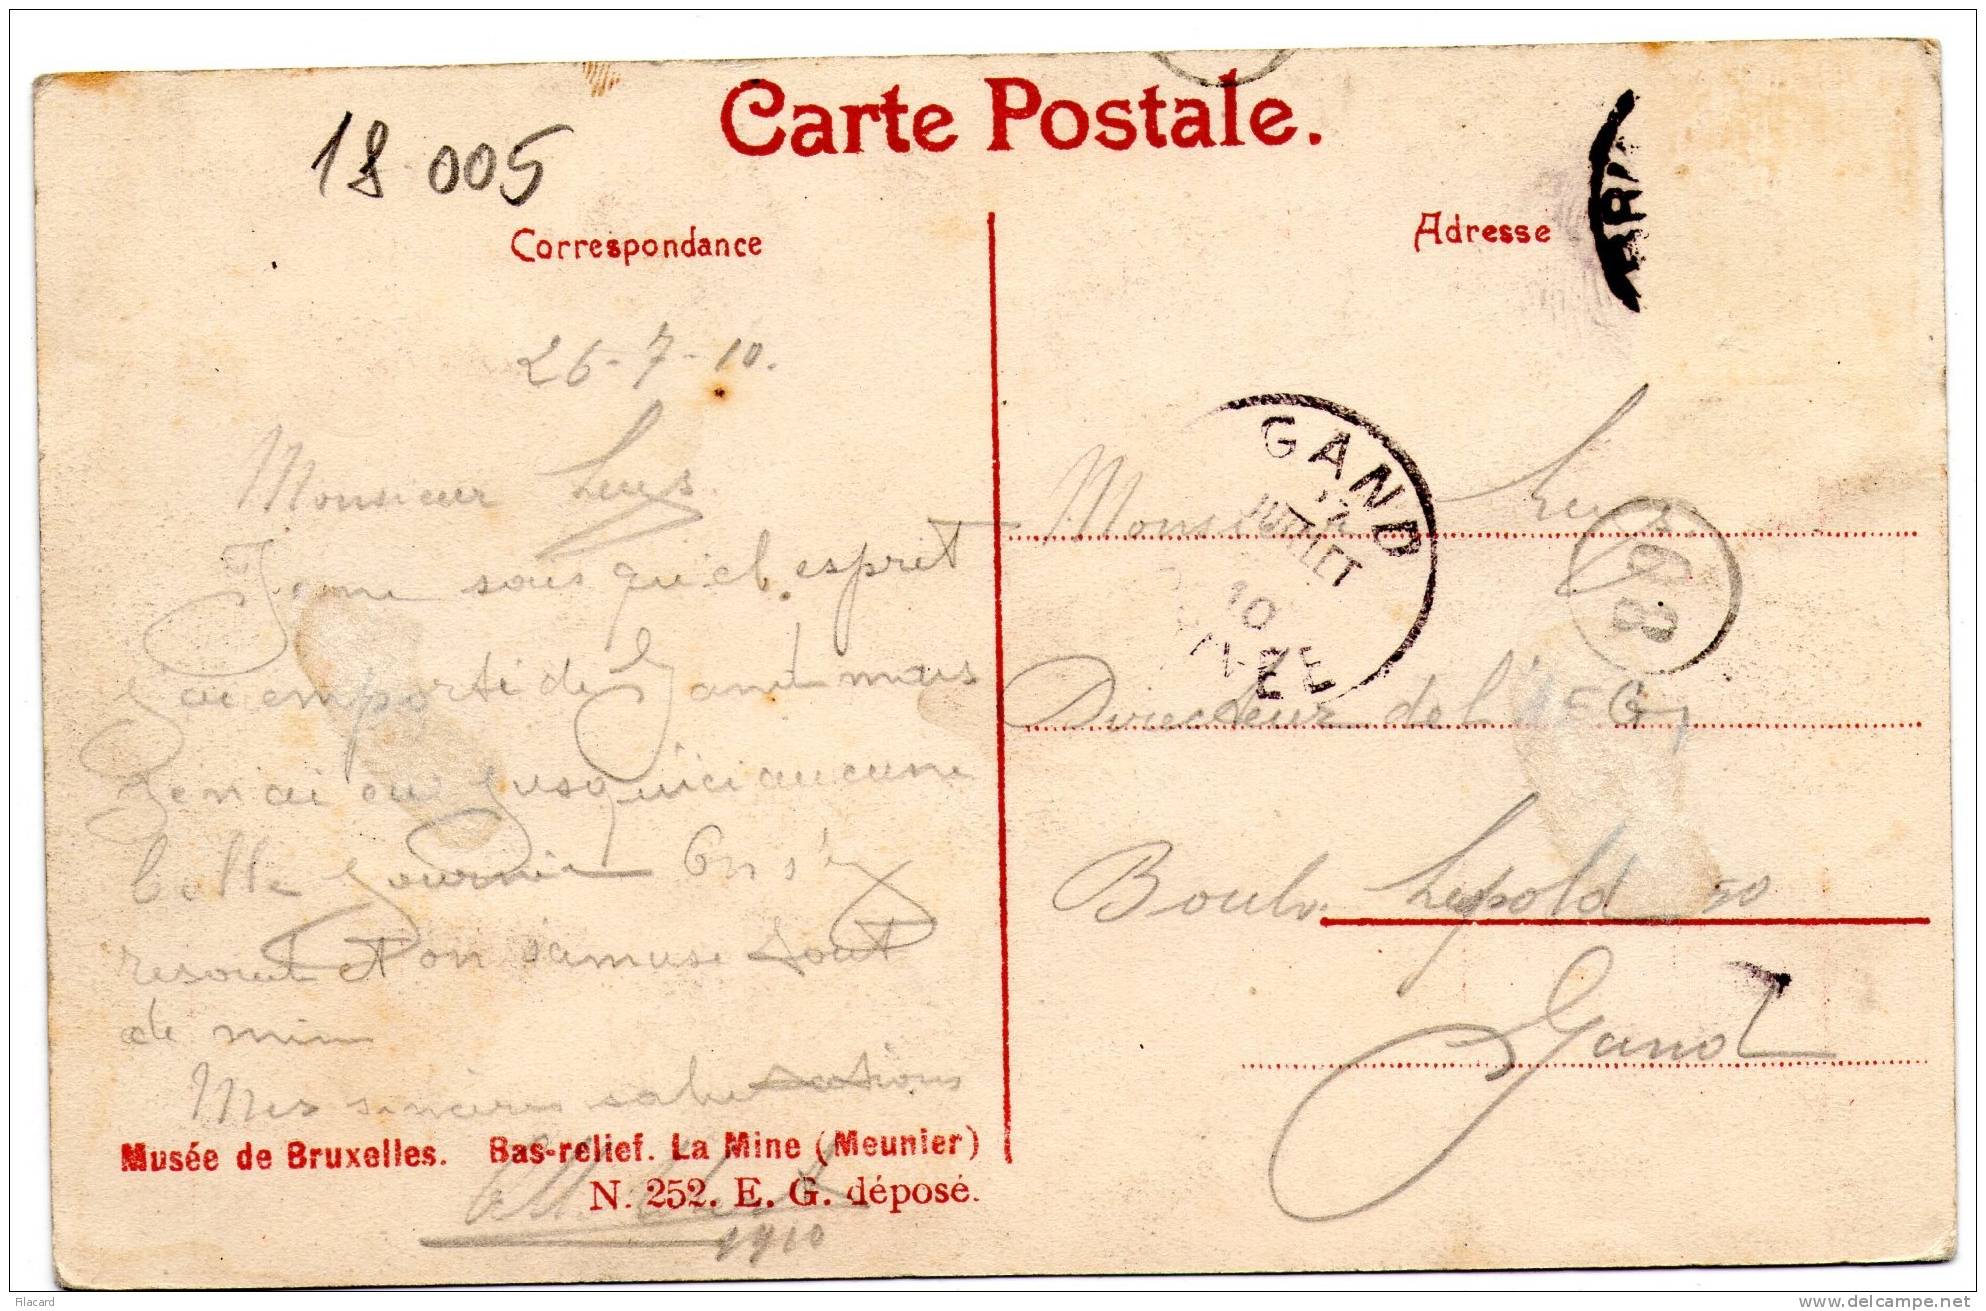 Carte Postale.
18 005
Correspondance
Adresse
26-7-10.
Monsieur Leys
Je ne sais quel esprit
j'ai emporté de Gand mais
je n'ai eu jusqu'ici aucune
belle journée On s'y
resout et on s'amuse tout
de même
Mes sincères salutations
1910
Musée de Bruxelles. Bas-relief. La Mine (Meunier)
N. 252. E. G. déposé.
GAND
JUILLET
10
Monsieur Leys
Directeur de l'
Boulv. Léopold 50
Gand
Filacard
www.delcampe.net